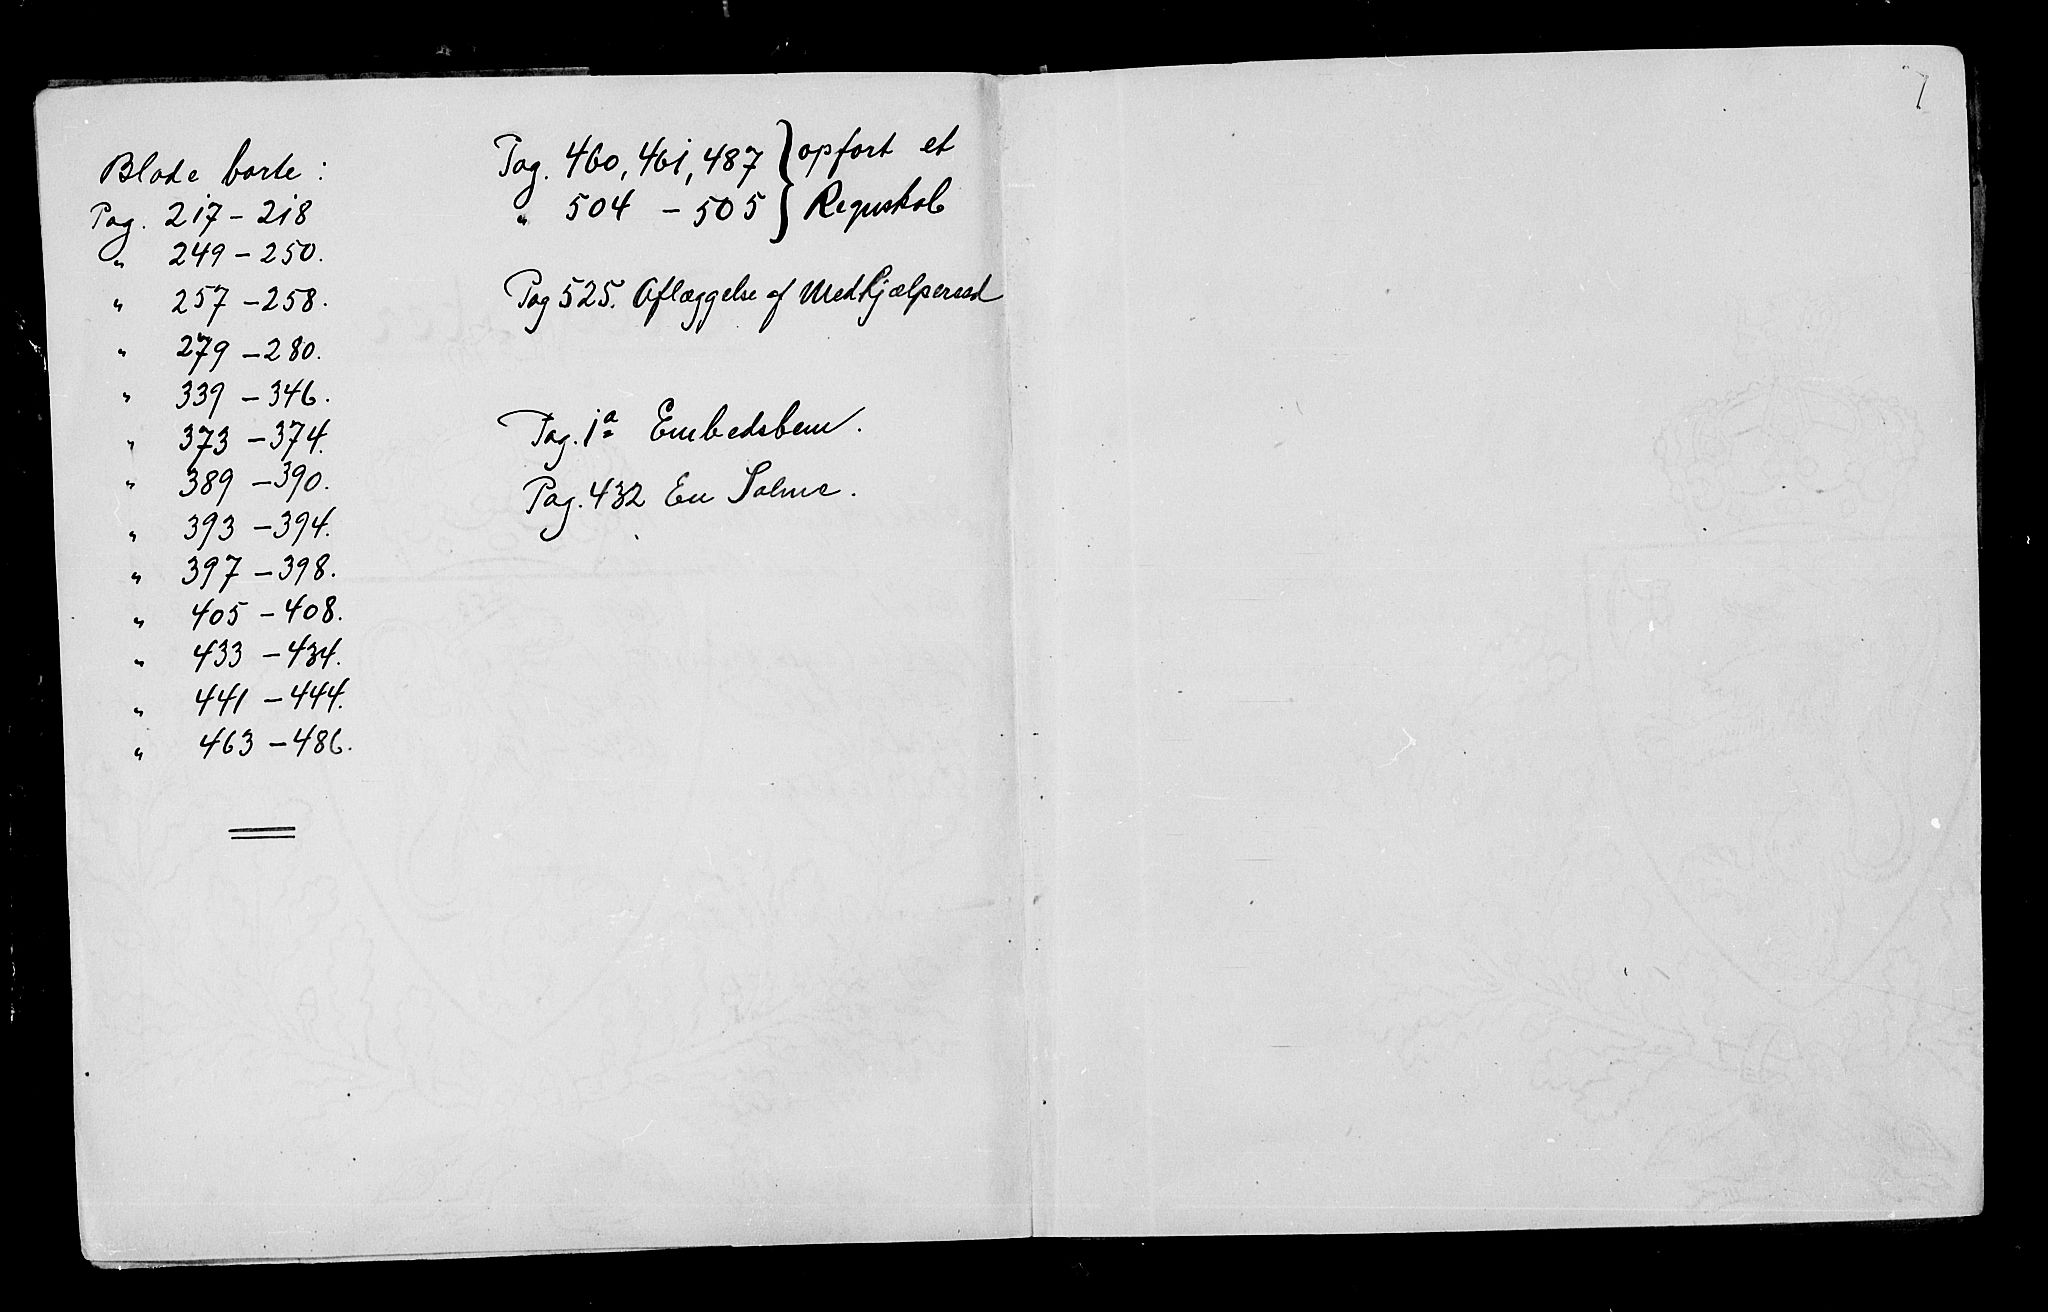 Blade borte:
Pag. 217 – 218
" 249 – 250.
" 257 – 258.
" 279 – 280.
" 339 – 346.
" 373 – 374.
" 389 – 390.
" 393 – 394.
" 397 – 398.
" 405 – 408.
" 433 – 434.
" 441 – 444.
" 463 – 486.
Pag. 460, 461, 487 } opført et
" 504 – 505 } Regnskab
Pag 525. Aflæggelse af Medhjælpereed
Pag. 1a Embedsbem.
Pag. 432 En Salme.